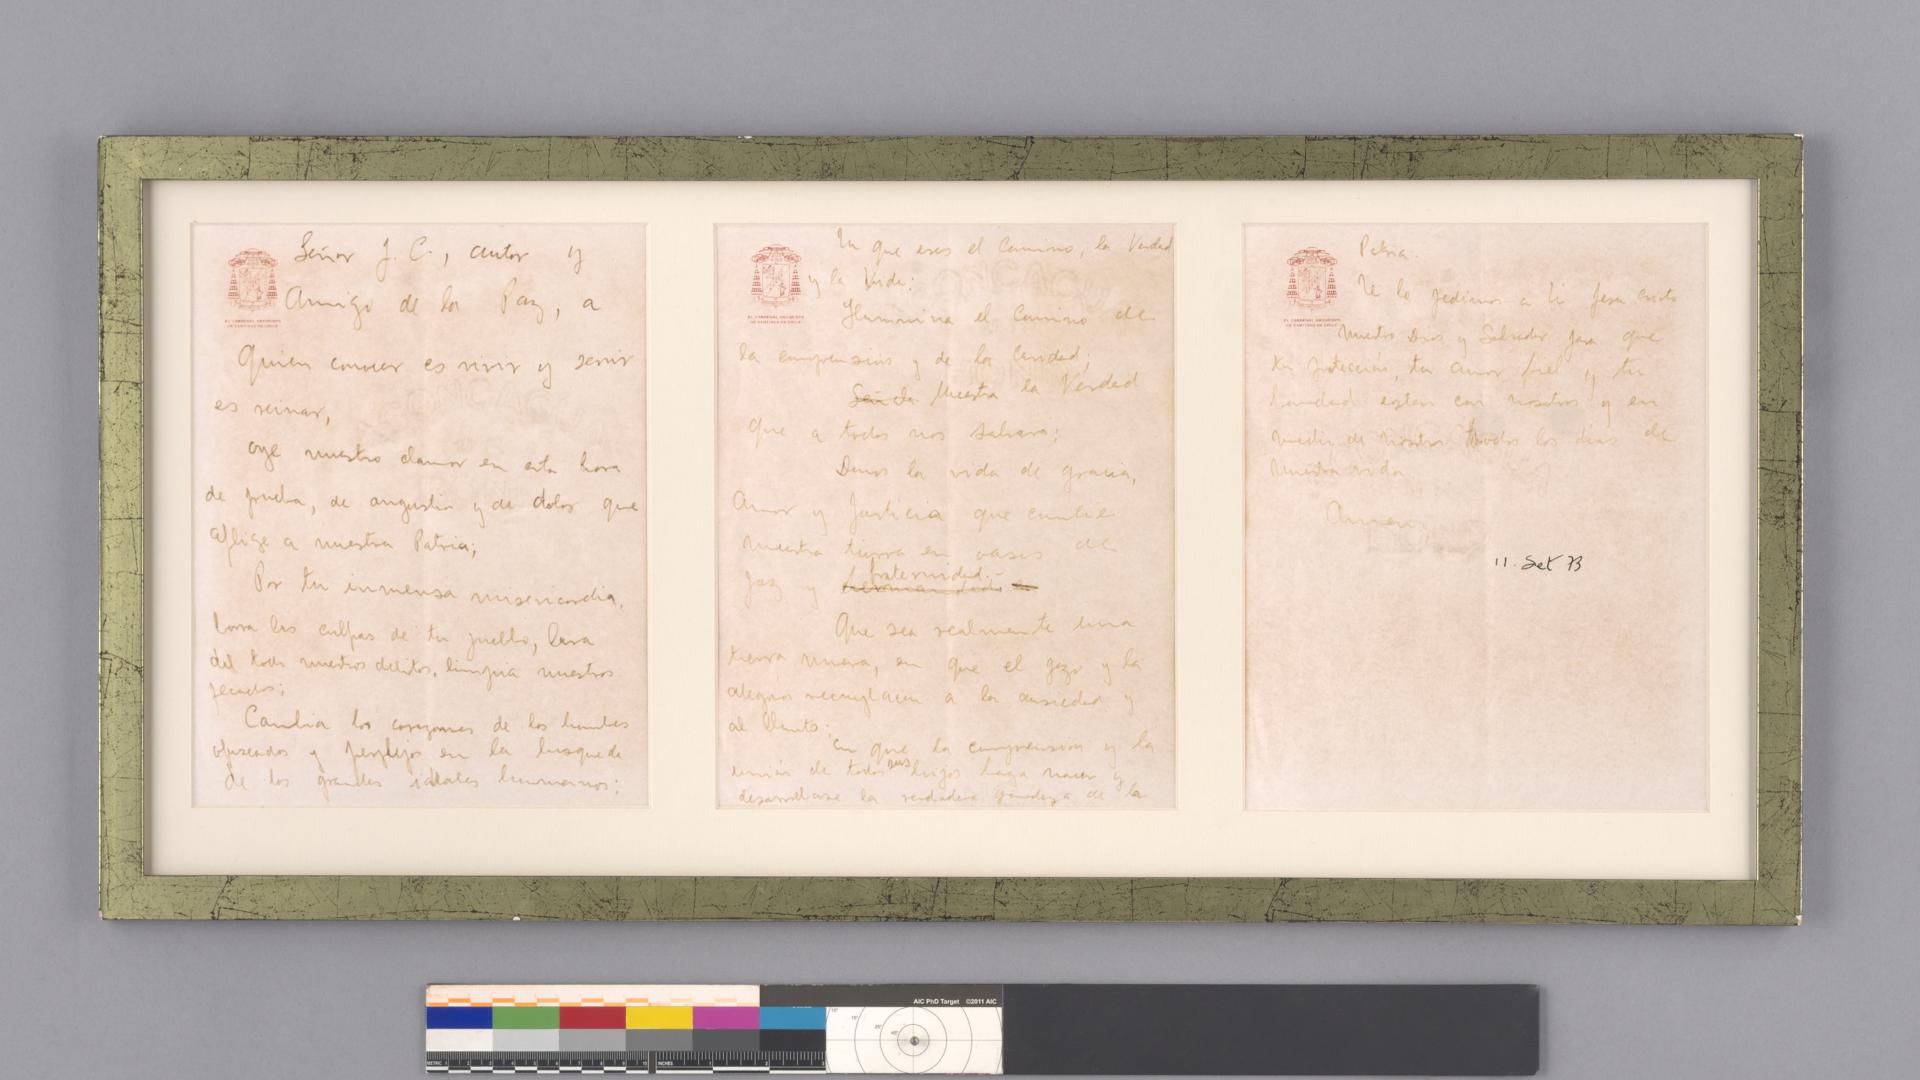 Señor J. C., autor y
Amigo de la Paz, a
Quien conocer es vivir y servir
es reinar,
oye nuestro clamor en esta hora
de prueba, de angustia y de dolor que
aflige a nuestra Patria;
Por tu inmensa misericordia,
borra las culpas de tu pueblo, lava
del todo nuestros delitos, limpia nuestros
pecados;
Cambia los corazones de los hombres
ofuscados y perplejos en la busqueda
de los grandes ideales humanos;
EL CARDENAL ARZOBISPO
DE SANTIAGO DE CHILE
Tu que eres el Camino, la Verdad
y la Vida:
Ilumina el Camino de
la comprension y de la Caridad;
Muestra la Verdad
que a todos nos salvara;
Danos la vida de gracia,
Amor y Justicia que cambie
nuestra tierra en oasis de
paz y fraternidad.-
Que sea realmente una
tierra nueva, en que el gozo y la
alegria reemplacen a la ansiedad y
al llanto;
en que la comprension y la
union de todos sus hijos haga nacer y
desarrollarse la verdadera grandeza de la
EL CARDENAL ARZOBISPO
DE SANTIAGO DE CHILE
Patria.
Te lo pedimos a ti Jesu Cristo
Nuestro Dios y Salvador para que
tu proteccion, tu amor fiel y tu
bondad esten con nosotros y en
medio de nosotros todos los dias de
nuestra vida
Amen.
11. Set 73
EL CARDENAL ARZOBISPO
DE SANTIAGO DE CHILE
AIC PhD Target ©2011 AIC
METRIC
INCHES